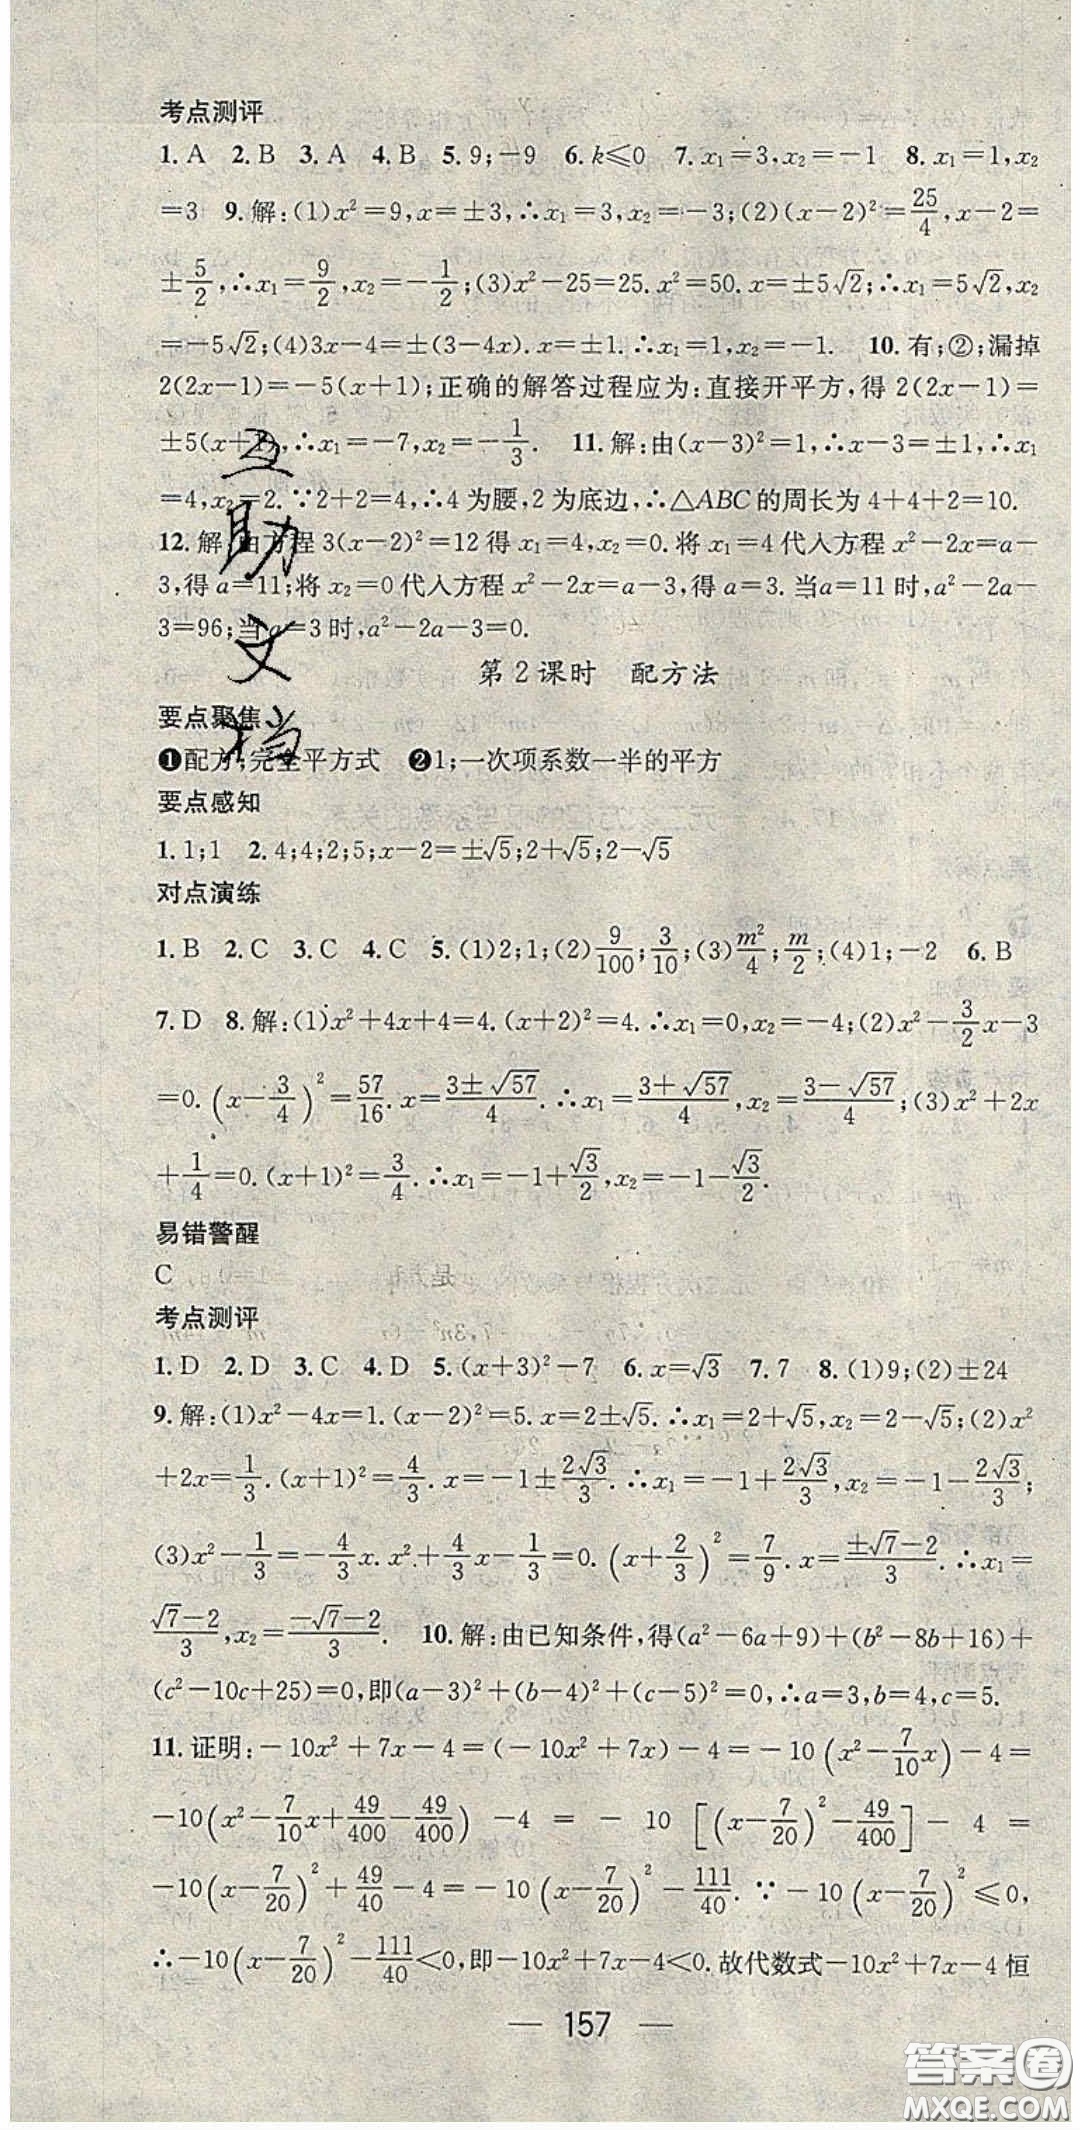 考点测评
1.A 2.B 3.A 4.B 5.9;－9 6.k≤0 7.x₁＝3,x₂＝－1 8.x₁＝1,x₂
＝3 9.解:(1)x²＝9,x＝±3,∴x₁＝3,x₂＝－3;(2)(x－2)²＝25/4,x－2＝
±5/2,∴x₁＝9/2,x₂＝－1/2;(3)x²－25＝25.x²＝50.x＝±5√2;∴x₁＝5√2,x₂
＝－5√2;(4)3x－4＝±(3－4x).x＝±1.∴x₁＝1,x₂＝－1. 10.有;②;漏掉
2(2x－1)＝－5(x＋1);正确的解答过程应为:直接开平方,得 2(2x－1)＝
±5(x＋1),∴x₁＝－7,x₂＝－1/3. 11.解:由(x－3)²＝1,∴x－3＝±1,∴x₁
＝4,x₂＝2.∵2＋2＝4,∴4 为腰,2 为底边,∴△ABC的周长为 4＋4＋2＝10.
12.解:由方程 3(x－2)²＝12 得 x₁＝4,x₂＝0.将 x₁＝4 代入方程 x²－2x＝a－
3,得 a＝11;将 x₂＝0代入方程 x²－2x＝a－3,得 a＝3.当a＝11 时,a²－2a－
3＝96;当 a＝3 时,a²－2a－3＝0.
第 2 课时 配方法
要点聚焦
❶配方;完全平方式 ❷1;一次项系数一半的平方
要点感知
1.1;1 2.4;4;2;5;x－2＝±√5;2＋√5;2－√5
对点演练
1.B 2.C 3.C 4.C 5.(1)2;1;(2)9/100;3/10;(3)m²/4;m/2;(4)1;－2 6.B
7.D 8.解:(1)x²＋4x＋4＝4.(x＋2)²＝4.∴x₁＝0,x₂＝－4;(2)x²－3/2x－3
＝0.(x－3/4)²＝57/16.x＝(3±√57)/4.∴x₁＝(3＋√57)/4,x₂＝(3－√57)/4;(3)x²＋2x
＋1/4＝0.(x＋1)²＝3/4.∴x₁＝－1＋√3/2,x₂＝－1－√3/2.
易错警醒
C
考点测评
1.D 2.D 3.C 4.D 5.(x＋3)²－7 6.x＝√3 7.7 8.(1)9;(2)±24
9.解:(1)x²－4x＝1.(x－2)²＝5.x＝2±√5.∴x₁＝2＋√5,x₂＝2－√5;(2)x²
＋2x＝1/3.(x＋1)²＝4/3.x＝－1±2√3/3.∴x₁＝－1＋2√3/3,x₂＝－1－2√3/3;
(3)x²－1/3＝－4/3x.x²＋4/3x－1/3＝0.(x＋2/3)²＝7/9.x＝(±√7－2)/3.∴x₁＝
(√7－2)/3,x₂＝(－√7－2)/3. 10.解:由已知条件,得(a²－6a＋9)＋(b²－8b＋16)＋
(c²－10c＋25)＝0,即(a－3)²＋(b－4)²＋(c－5)²＝0,∴a＝3,b＝4,c＝5.
11.证明:－10x²＋7x－4＝(－10x²＋7x)－4＝－10(x²－7/10x)－4＝
－10(x²－7/10x＋49/400－49/400)－4＝－10[(x－7/20)²－49/400]－4＝
－10(x－7/20)²＋49/40－4＝－10(x－7/20)²－111/40.∵－10(x－7/20)²≤0,
∴－10(x－7/20)²－111/40＜0,即－10x²＋7x－4＜0.故代数式－10x²＋7x－4 恒
— 157 —
互
助
文
档
答案圈
MXQE.COM